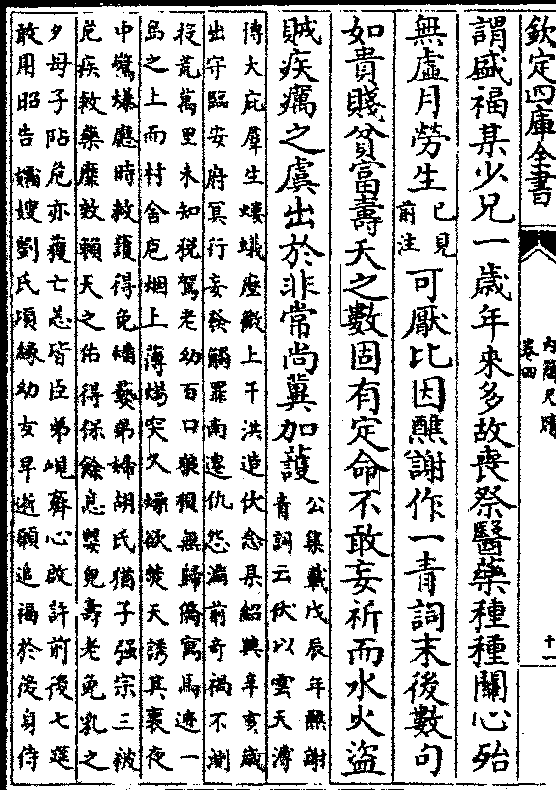 欽定四庫全書
內簡尺牘
卷四
十一
謂盛福某少兄一歲年來多故喪祭醫藥種種關心殆
無虛月勞生
已見
前注
可厭比因醮謝作一青詞末後數句
如貴賤貧富壽夭之數固有定命不敢妄祈而水火盜
賊疾癘之虞出於非常尚冀加護
公集載戊辰年醮謝
青詞云伏以雲天溥
博大庇羣生螻蟻塵微上干洪造伏念臣紹興辛亥歲
出守臨安府冥行妄發觸罪南遷仇怨滿前奇禍不測
投荒萬里未知稅駕老幼百口藥櫬無歸僑寓馬迹一
島之上而村舍庖烟上薄爆突久㷿欲焚天誘其衷夜
中驚爆應時救護得免燔爇弟婦胡氏猶子強宗三被
危疾救藥靡效賴天之佑得保餘息嬰兒壽老免乳之
夕母子阽危亦獲亡恙皆臣弟峴齋心啟許前後七筵
敢用昭告孀嫂劉氏頃緣幼女早逝願追福於後身侍